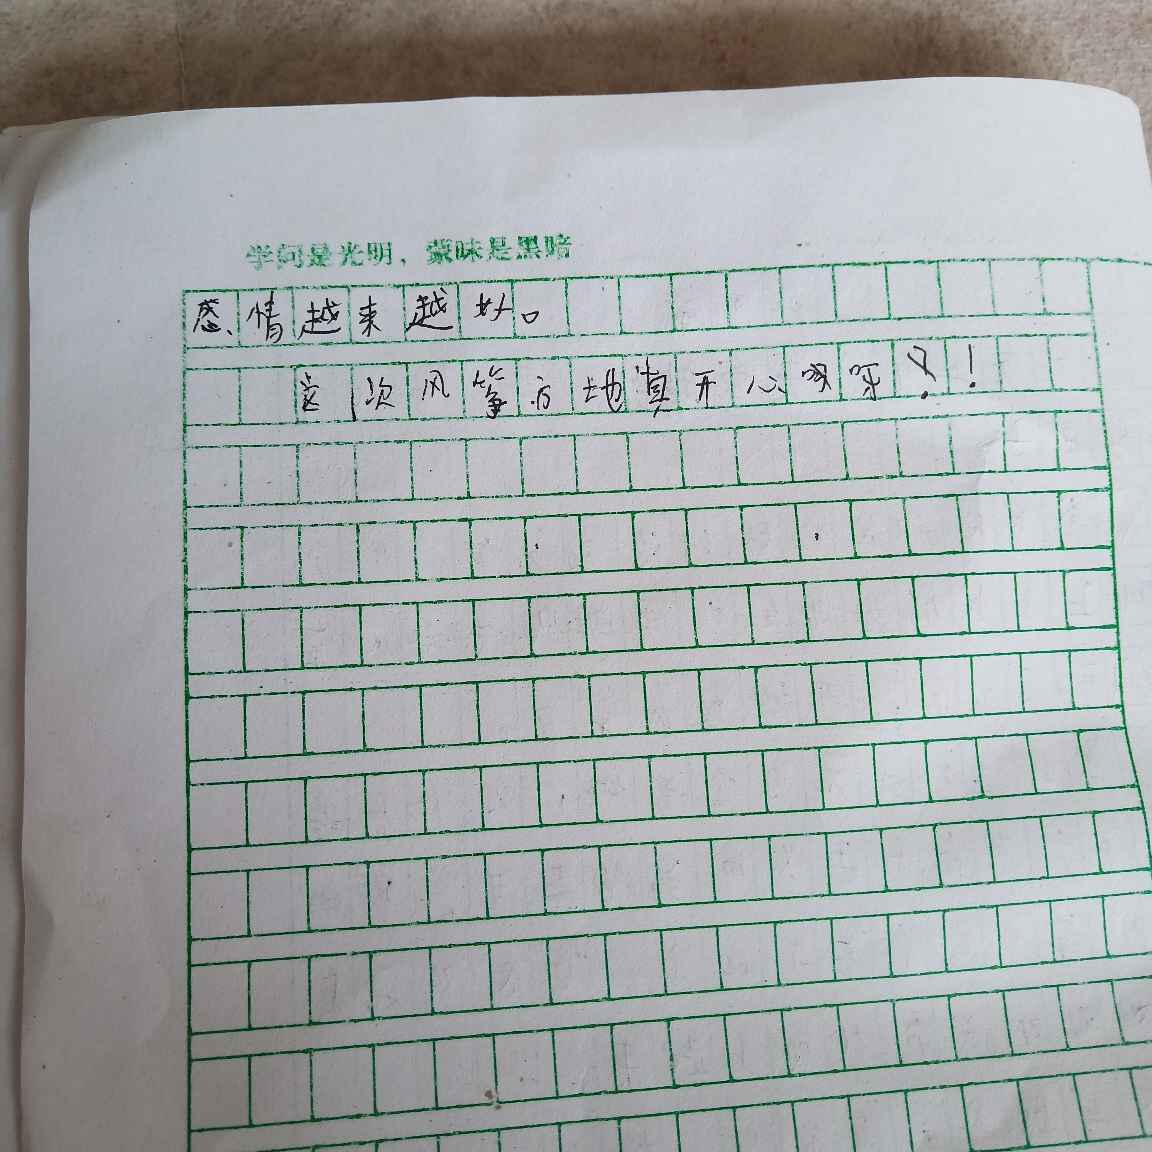 学问是光明，蒙昧是黑暗
感情越来越好。
这次风筝方地真开心呀？！